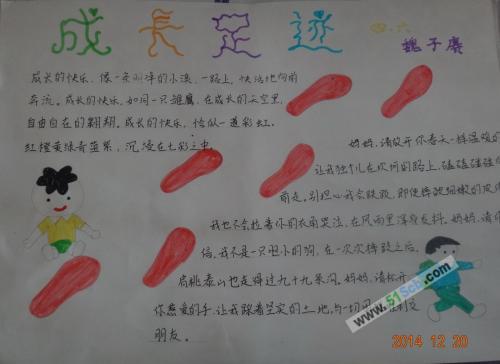 成长足迹
四·六
魏子赓
成长的快乐,像一条叫咩的小溪,一路上,快活地向前
奔流。成长的快乐,如同一只雏鹰,在成长的天空里,
自由自在的翱翔。成长的快乐,恰似一道彩虹,
红橙黄绿青蓝紫,沉浸在七彩之中。
妈妈,请放开你春天一样温暖的
让我独个儿在坎坷的路上,磕磕碰碰
前走。别担心我会跌跤,即使摔破细嫩的皮
我也不会拉着你的衣角哭泣,在风雨里浑身发抖。妈妈,请你
信,我不是一只胆小的狗,在一次次摔跤之后。
肩挑泰山也走得过九十九条沟。妈妈,请松开
你慈爱的手,让我踩着坚定的土地,与一切
朋友。
www.51Scb.com
2014 12 20